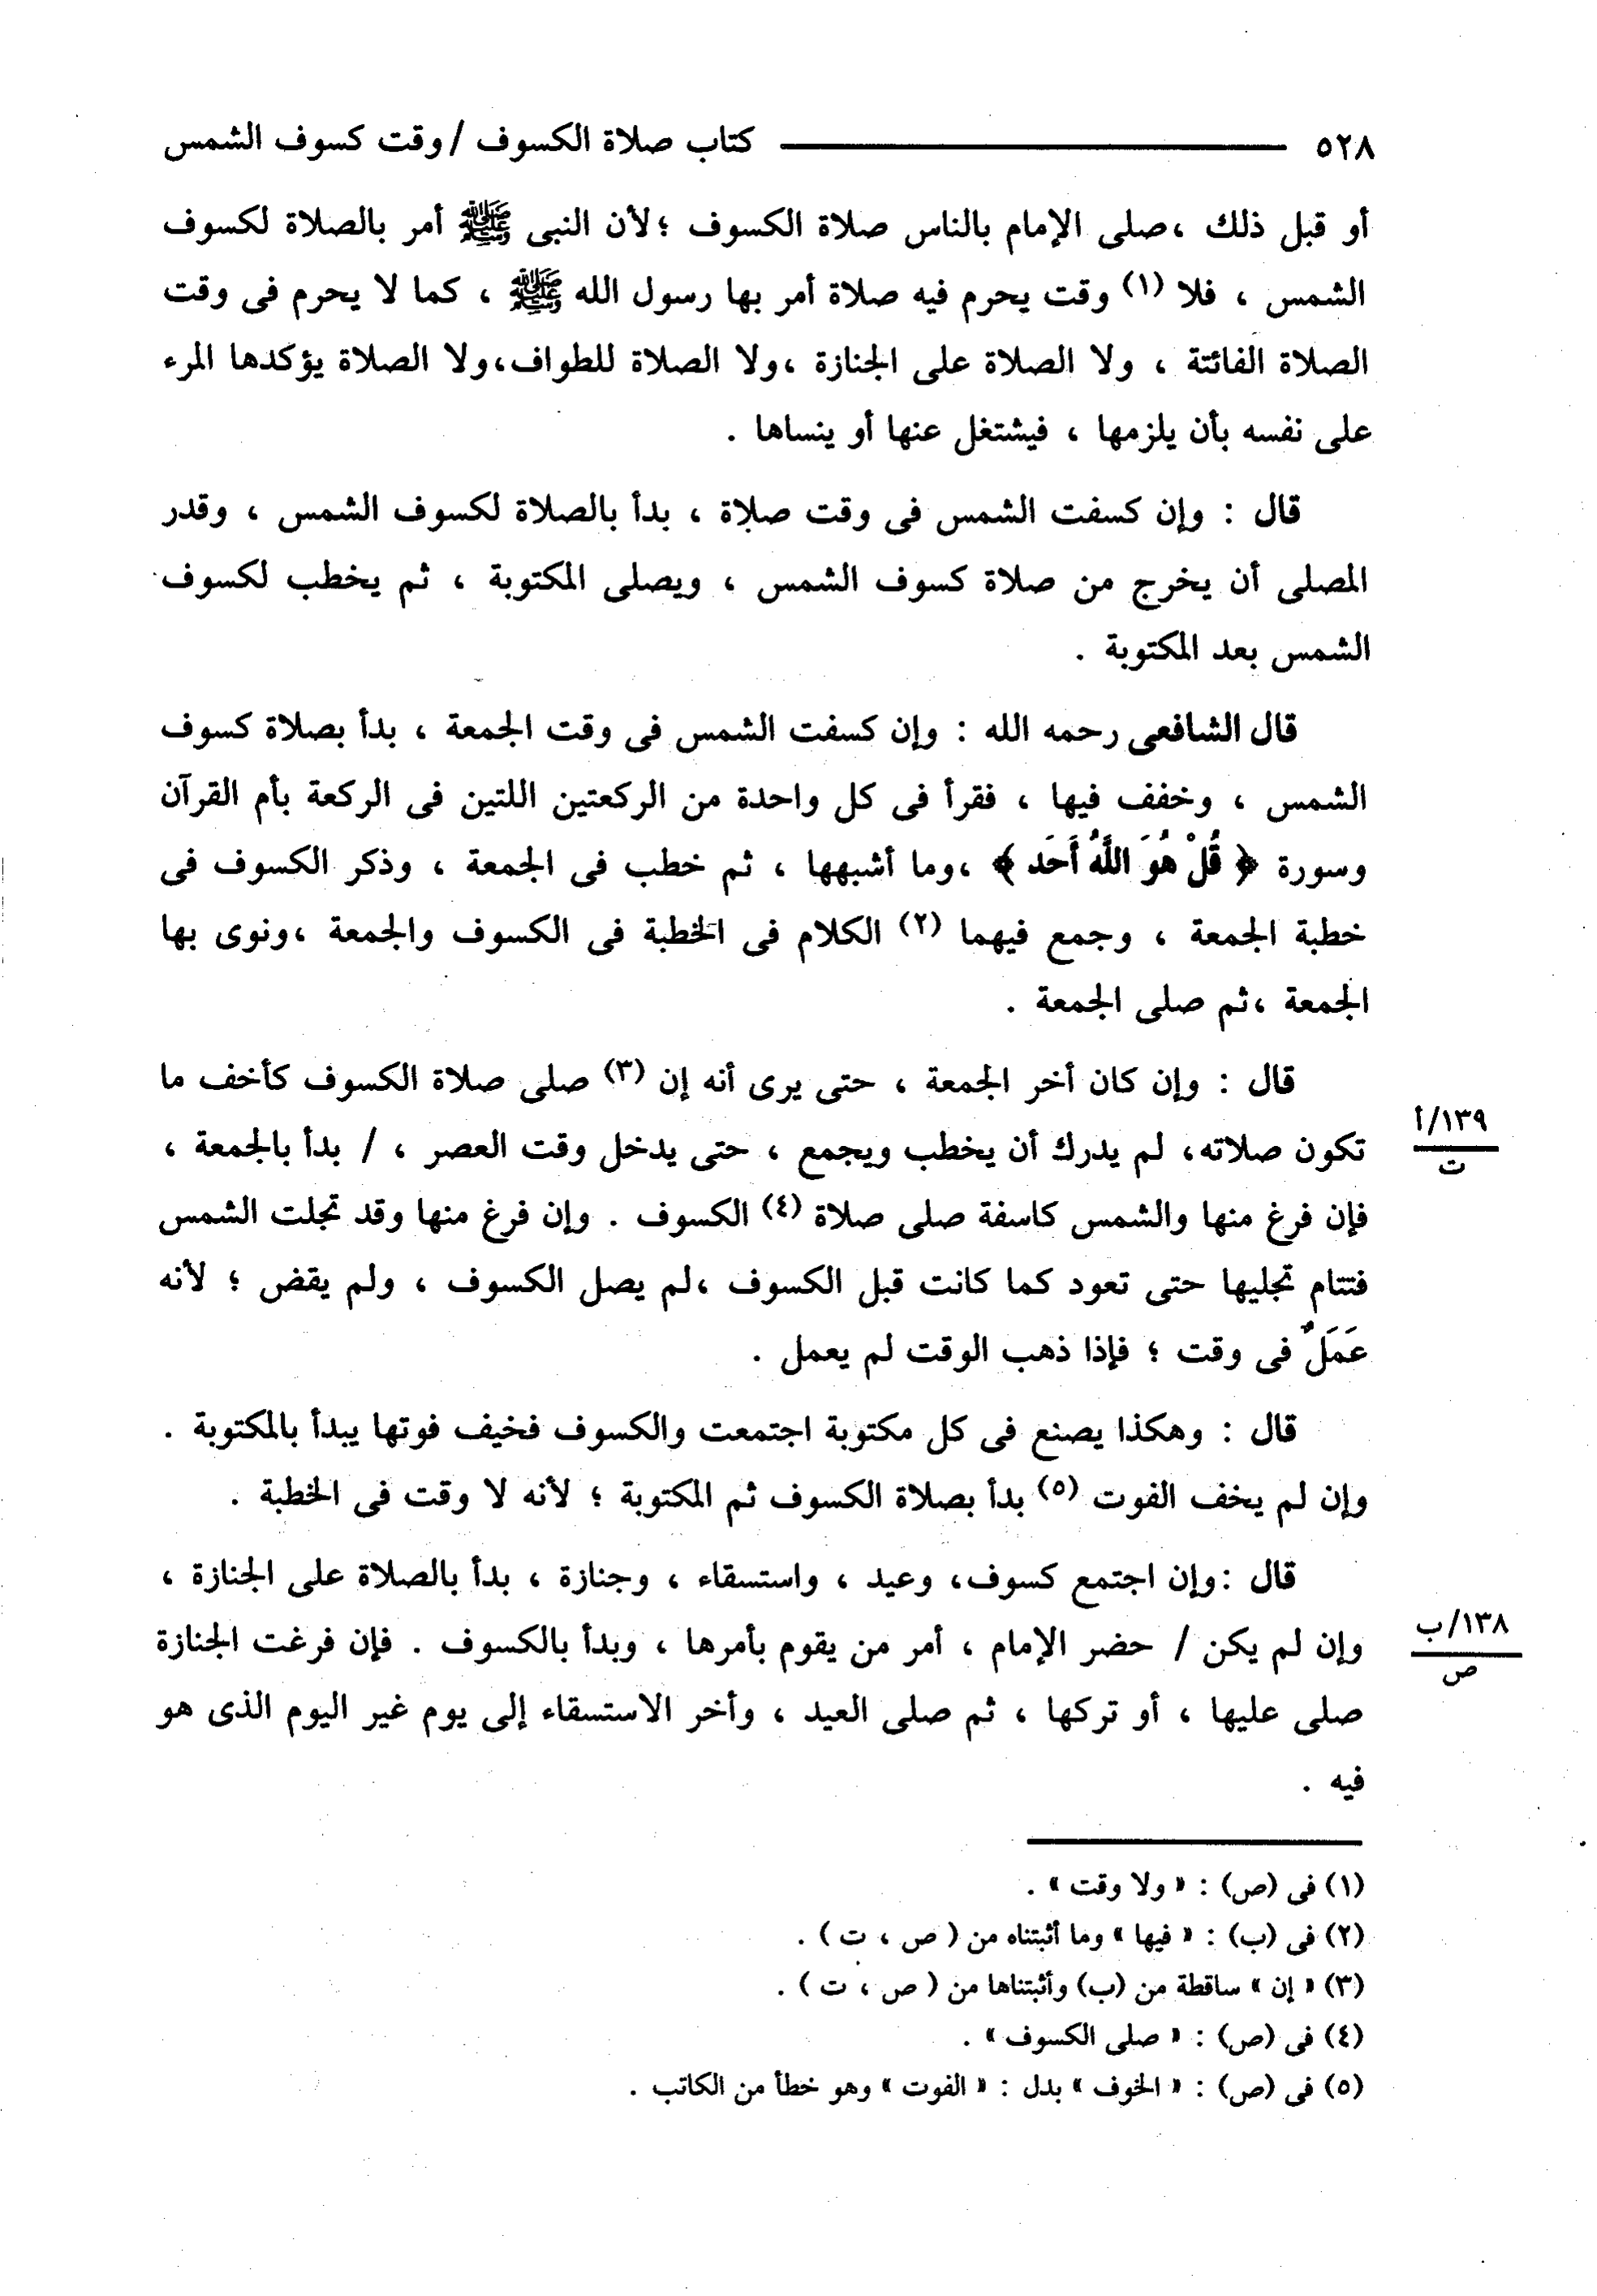 ٥٢٨ ــــــــــــــــــــ كتاب صلاة الكسوف / وقت كسوف الشمس
أو قبل ذلك ، صلى الإمام بالناس صلاة الكسوف ؛ لأن النبى ﷺ أمر بالصلاة لكسوف
الشمس ، فلا (١) وقت يحرم فيه صلاة أمر بها رسول الله ﷺ ، كما لا يحرم فى وقت
الصلاة الفائتة ، ولا الصلاة على الجنازة ، ولا الصلاة للطواف، ولا الصلاة يؤكدها المرء
على نفسه بأن يلزمها ، فيشتغل عنها أو ينساها .
قال : وإن كسفت الشمس فى وقت صلاة ، بدأ بالصلاة لكسوف الشمس ، وقدر
المصلى أن يخرج من صلاة كسوف الشمس ، ويصلى المكتوبة ، ثم يخطب لكسوف
الشمس بعد المكتوبة .
قال الشافعى رحمه الله : وإن كسفت الشمس فى وقت الجمعة ، بدأ بصلاة كسوف
الشمس ، وخفف فيها ، فقرأ فى كل واحدة من الركعتين اللتين فى الركعة بأم القرآن
وسورة ﴿ قُلْ هُوَ اللَّهُ أَحَد ﴾ ، وما أشبهها ، ثم خطب فى الجمعة ، وذكر الكسوف فى
خطبة الجمعة ، وجمع فيهما (٢) الكلام فى الخطبة فى الكسوف والجمعة ، ونوى بها
الجمعة ، ثم صلى الجمعة .
قال : وإن كان أخر الجمعة ، حتى يرى أنه إن (٣) صلى صلاة الكسوف كأخف ما
تكون صلاته، لم يدرك أن يخطب ويجمع ، حتى يدخل وقت العصر ، / بدأ بالجمعة ،
١٣٩/أ
ت
فإن فرغ منها والشمس كاسفة صلى صلاة (٤) الكسوف . وإن فرغ منها وقد تجلت الشمس
فتتام تجليها حتى تعود كما كانت قبل الكسوف ، لم يصل الكسوف ، ولم يقض ؛ لأنه
عَمَلٌ فى وقت ؛ فإذا ذهب الوقت لم يعمل .
قال : وهكذا يصنع فى كل مكتوبة اجتمعت والكسوف فخيف فوتها يبدأ بالمكتوبة .
وإن لم يخف الفوت (٥) بدأ بصلاة الكسوف ثم المكتوبة ؛ لأنه لا وقت فى الخطبة .
قال : وإن اجتمع كسوف، وعيد ، واستسقاء ، وجنازة ، بدأ بالصلاة على الجنازة ،
وإن لم يكن / حضر الإمام ، أمر من يقوم بأمرها ، وبدأ بالكسوف . فإن فرغت الجنازة
١٣٨/ب
ص
صلى عليها ، أو تركها ، ثم صلى العيد ، وأخر الاستسقاء إلى يوم غير اليوم الذى هو
فيه .
(١) فى (ص) : « ولا وقت » .
(٢) فى (ب) : « فيها » وما أثبتناه من ( ص ، ت ) .
(٣) « إن » ساقطة من (ب) وأثبتناها من ( ص ، ت ) .
(٤) فى (ص) : « صلى الكسوف » .
(٥) فى (ص) : « الخوف » بدل : « الفوت » وهو خطأ من الكاتب .